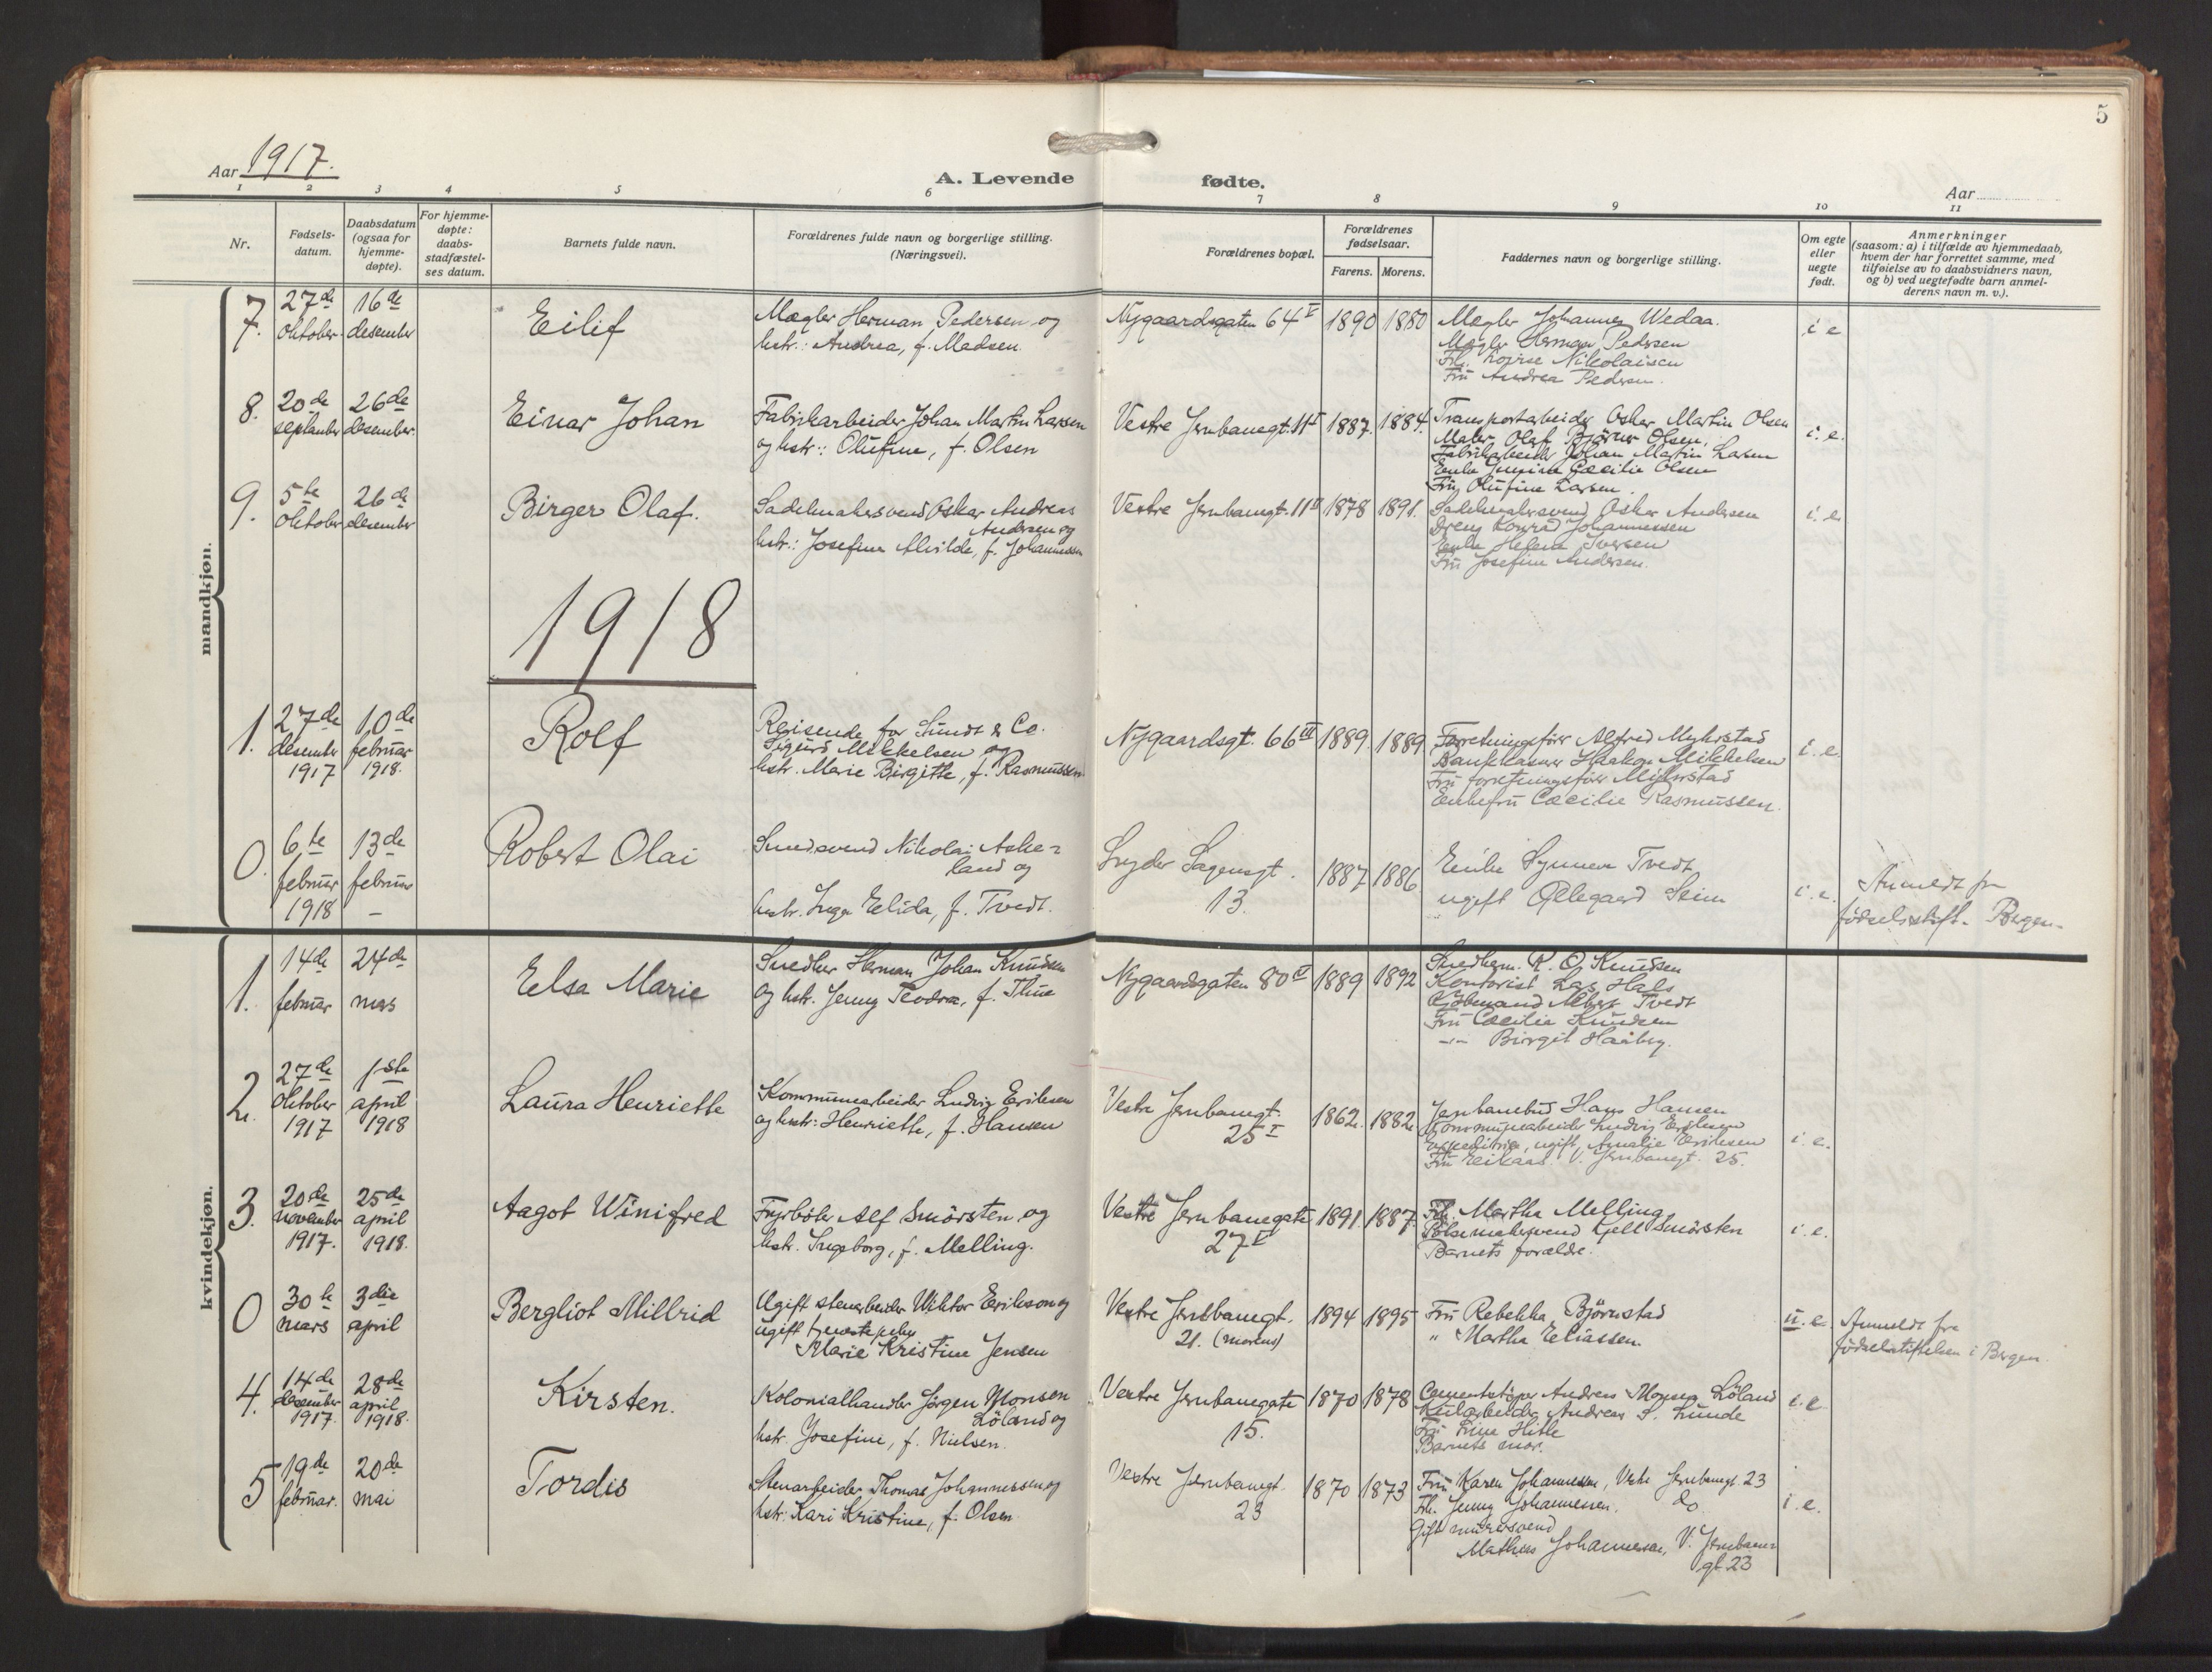 5
Aar 1917.
A. Levende fødte.
Aar
1 2 3 4 5 6 7 8 9 10 11
Nr.
Fødsels-
datum.
Daabsdatum
(ogsaa for
hjemme-
døpte).
For hjemme-
døpte:
daabs-
stadfæstel-
ses datum.
Barnets fulde navn.
Forældrenes fulde navn og borgerlige stilling.
(Næringsvei).
Forældrenes bopæl.
Forældrenes
fødselsaar.
Farens. Morens.
Faddernes navn og borgerlige stilling.
Om egte
eller
uegte
født.
Anmerkninger
(saasom: a) i tilfælde av hjemmedaab,
hvem der har forrettet samme, med
tilføielse av to daabsvidners navn,
og b) ved uegtefødte barn anmel-
derens navn m. v.).
mandkjøn.
7.
27de
oktober
16de
desember
Eilif
Mægler Herman Pedersen og
hstr.: Andrea, f. Madsen.
Nygaardsgaten 64 V
1890 1880
Mægler Johannes Wedaa.
Mægler Herman Pedersen
Frk. Lovise Nikolaisen
Fru Andrea Pedersen.
i e
8.
20de
september
26de
desember.
Einar Johan
Fabrikarbeider Johan Martin Larsen
og hstr.: Olufine, f. Olsen
Vestre Jernbanegt. 11 I
1887. 1884.
Transportarbeider Oskar Martin Olsen
Maler Olaf Bjørner Olsen.
Fabrikarbeider Johan Martin Larsen
Enke Cæcilie Olsen
Fru Olufine Larsen.
i. e.
9.
5te
oktober
26de
desember
Birger Olaf.
Sadelmakersvend Oskar Andreas
Andersen og
hstr.: Josefine Alvilde, f. Johannessen
Vestre Jernbanegt. 11 II
1878 1891.
Sadelmakersvend Oskar Andersen
Dreng Konrad Johannessen
Enke Helene Iversen
Fru Josefine Andersen.
i. e.
1918
1.
27de
desember
1917
10de
februar
1918.
Rolf
Reisende for Sundt & Co.
Sigurd Mikkelsen og
hstr. Marie Birgitte, f. Rasmussen.
Nygaardsgt. 66 III
1889. 1889
Forretningsfører Alfred Myhrstad
Bankkasserer Haakon Mikkelsen
Fru forretningsfører Myhrstad
Enkefru Cæcilie Rasmussen.
i. e.
0.
6te
februar
1918
13de
februar
–
Robert Olai
Smedsvend Nikolai Aske=
land og
hstr. Inga Elida, f. Tvedt.
Lyder Sagensgt.
13.
1887 1886
Enke Synneva Tvedt
ugift Ollegaard Seim
i. e.
Anmeldt fra
fødselsstift. Bergen.
kvindekjøn.
1.
14de
februar
24de
mars
Elsa Marie
Snedker Herman Johan Knudsen
og hstr. Jenny Teodora, f. Thue
Nygaardsgaten 80 V
1889 1892
Snedkerm. R. O. Knudsen
Kontorist Lars Hals
Kjøbmand Albert Tvedt
Fru Cæcilie Knudsen
–"– Birgit Haaberg.
2.
27de
oktober
1917
1ste
april
1918
Laura Henriette
Kommunearbeider Ludvig Eriksen
og hstr: Henriette, f. Hansen
Vestre Jernbanegt.
25 I
1862. 1882.
Jernbanebud Hans Hansen
Kommunearbeider Ludvig Eriksen
Expeditrice, ugift, Amalie Eriksen
Fru Eikaas V. Jernbanegt. 25.
i. e.
3.
20de
november
1917.
25de
april
1918.
Aagot Winifred
Fyrbøter Alf Smörsten og
hstr. Ingeborg, f. Melling.
Vestre Jernbanegate
27 I
1891. 1887.
Frk. Martha Melling
Pølsemakersvend Kjell Smörsten
Barnets forældre.
i. e.
0
30te
mars
3die
april
Bergliot Milbrid
Ugift stenarbeider Viktor Erikson og
ugift tjenestepike
Marie Kristine Jensen
Vestre Jernbanegt.
21. (morens)
1894 1895
Fru Rebekka Björnstad
" Martha Eliassen.
u. e.
Anmeldt fra
fødselsstiftelsen i Bergen.
4.
14de
desember
1917.
28de
april
1918.
Kirsten.
Kolonialhandler Jørgen Monsen
Löland og
hstr. Josefine, f. Nielsen.
Vestre Jernbanegate
15.
1870 1878
Cementstøper Andreas Monsen Löland
Kularbeider Andreas S. Lunde
Fru Trine Hitle
Barnets mor.
i. e
5
19de
februar.
20de
mai
Tordis
Stenarbeider Thomas Johannessen og
hstr: Kari Kristine, f. Olsen
Vestre Jernbanegt.
23
1870 1873
Fru Karen Johannessen, Vestre Jernbanegt. 23
Frk. Jenny Johannessen. do.
Gift murersvend
Mathias Johannessen, V. Jernbane-
gt 23
i. e.